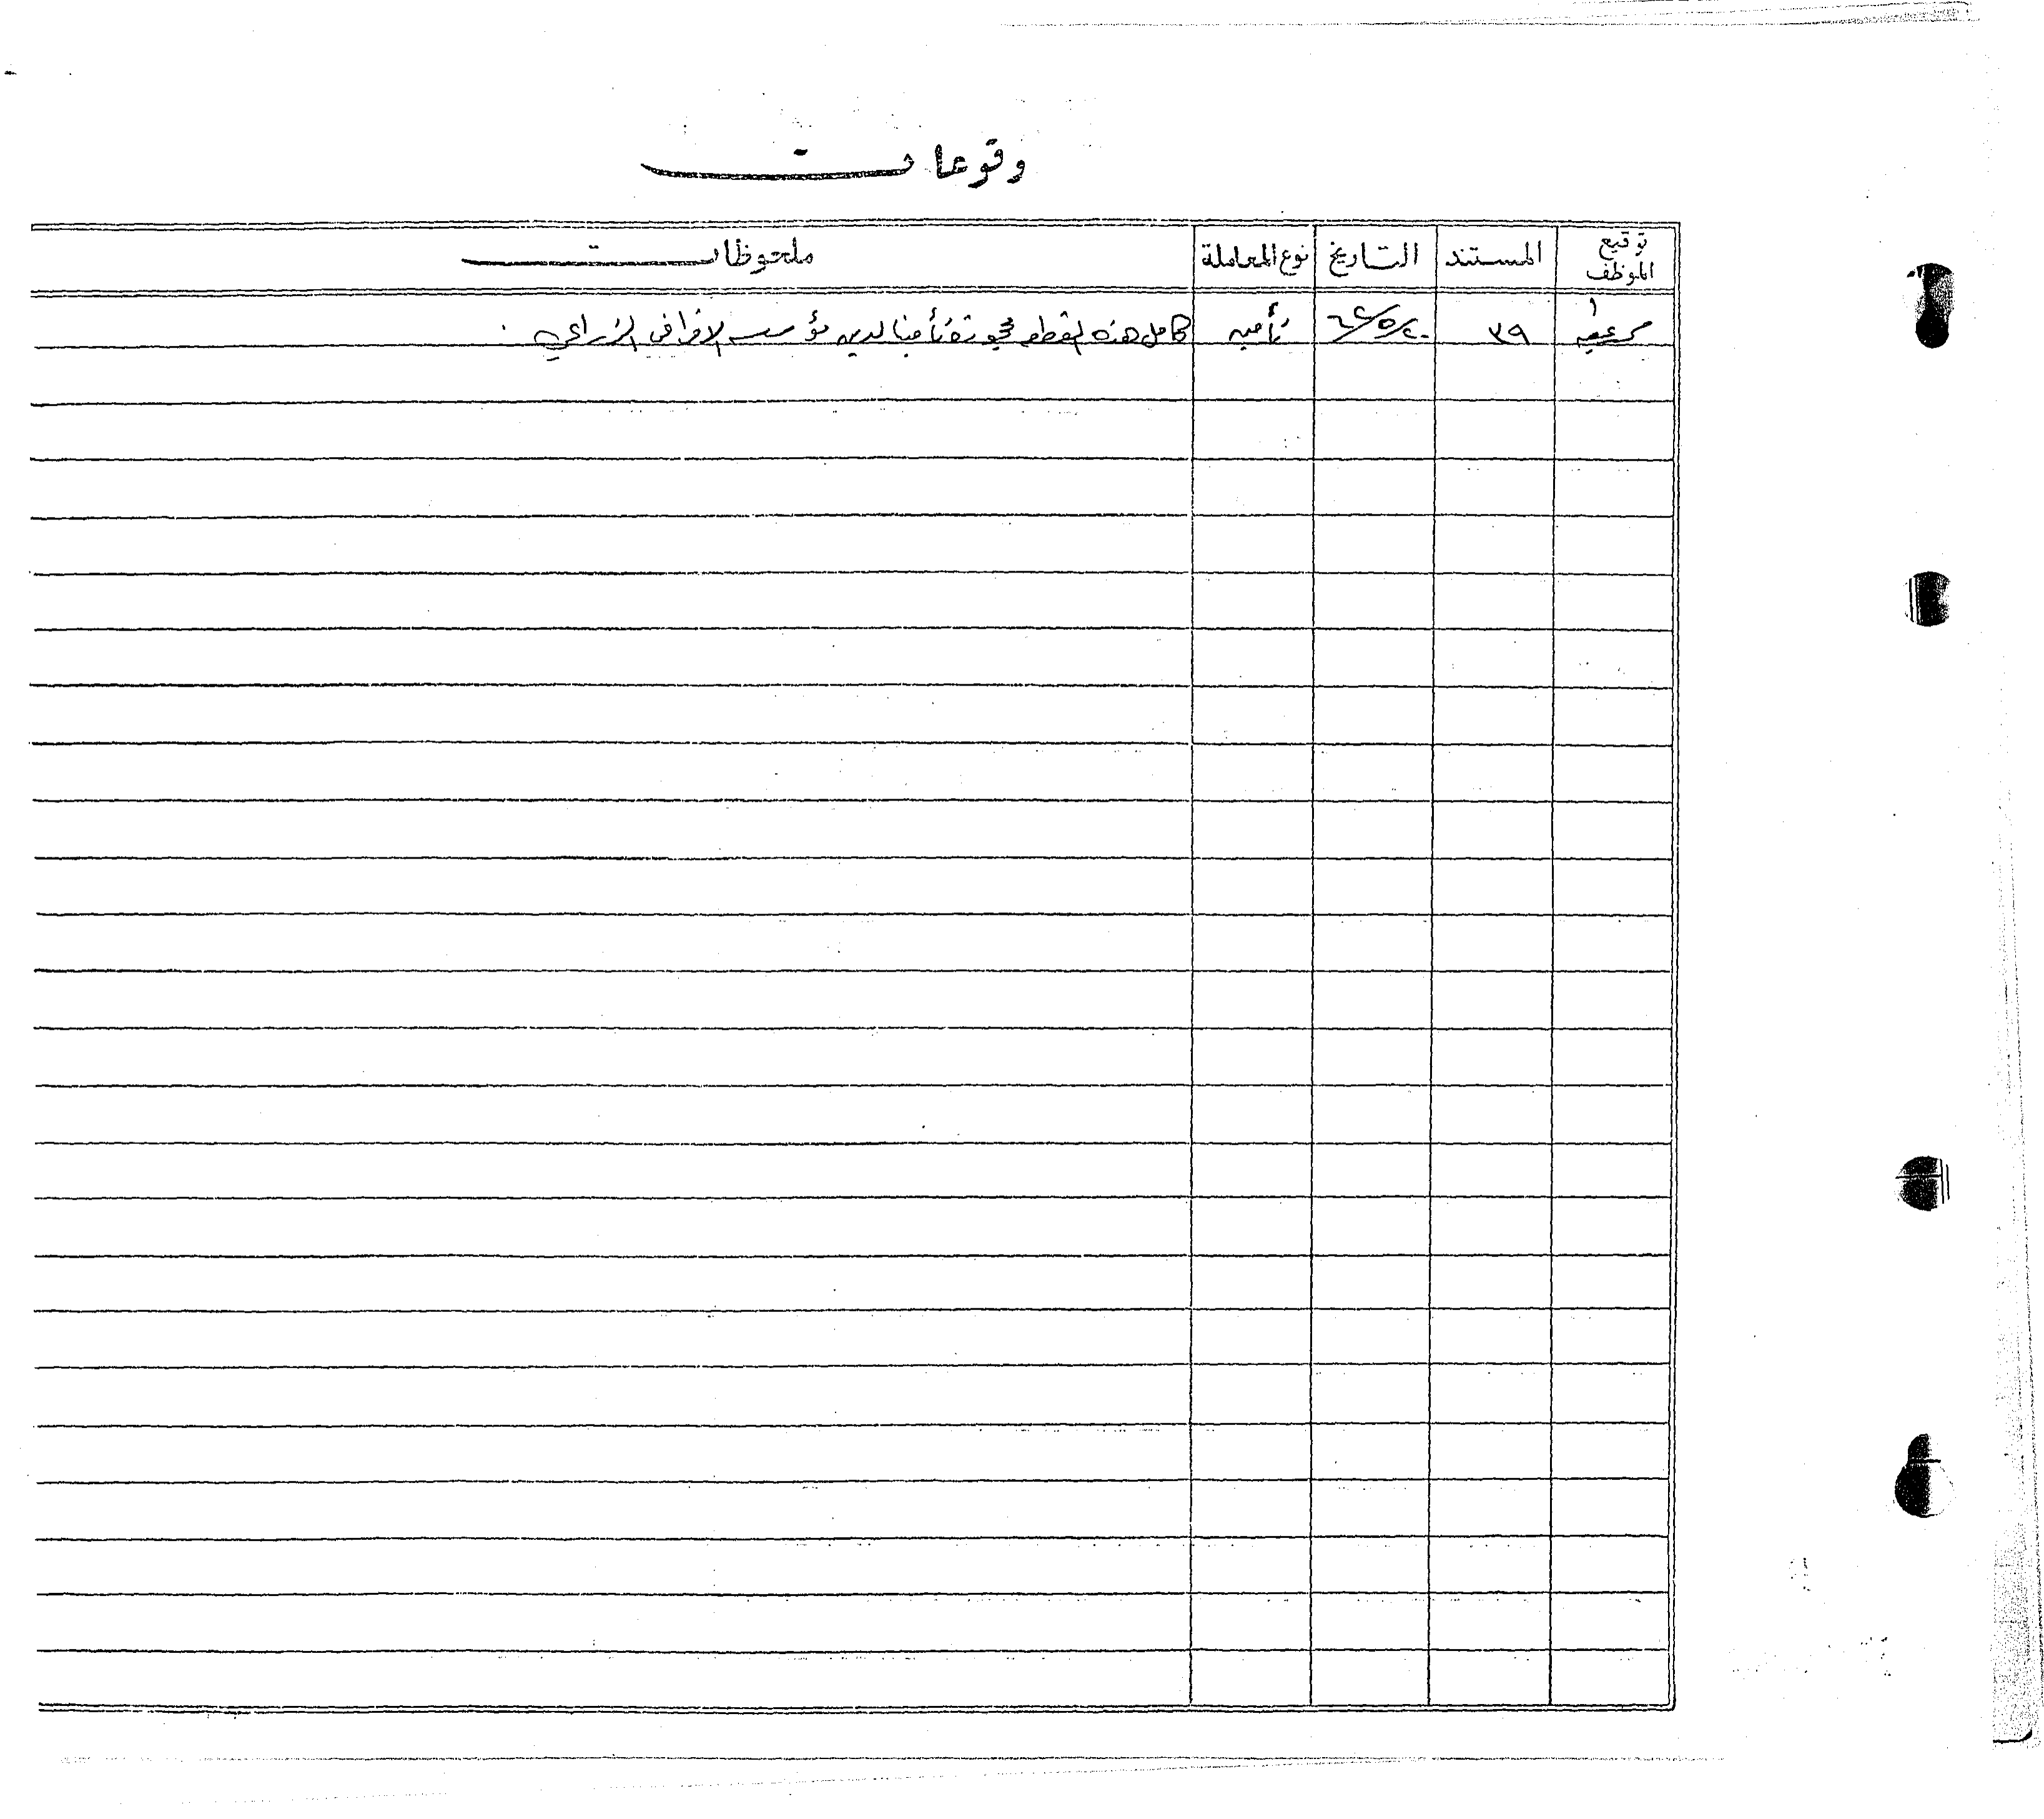 وقوعات
توقيع الموظف المستند التاريخ نوع المعاملة ملحوظات
٣٩ ٦٤/٥/٢٠ تأمين كامل هذه القطعه محجوزة تأمينا لدى مؤسسه الاقراض الزراعي .